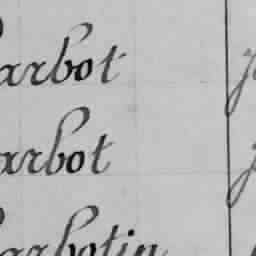 arbot
arbot
arbotin